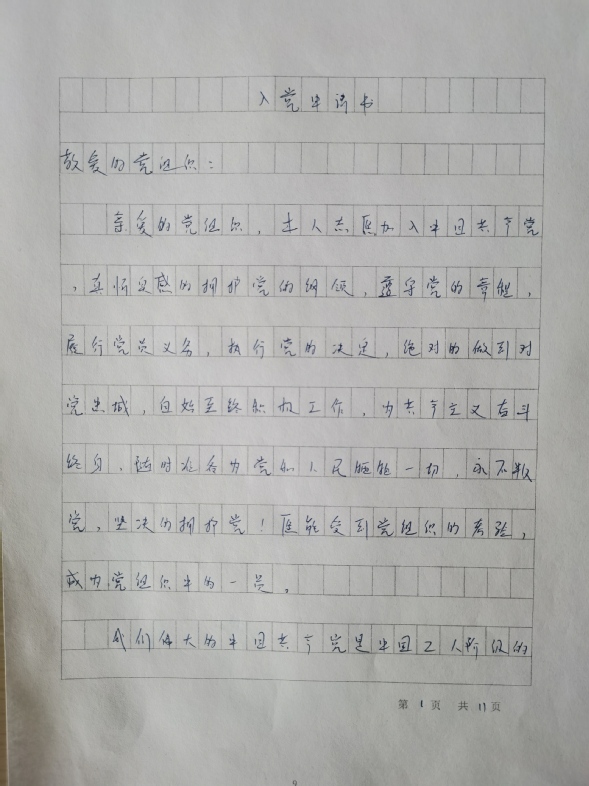 入党申请书
敬爱的党组织：
亲爱的党组织，本人志愿加入中国共产党
，真情实感的拥护党的纲领，遵守党的章程，
履行党员义务，执行党的决定，绝对的做到对
党忠诚，自始至终积极工作，为共产主义奋斗
终身，随时准备为党和人民牺牲一切，永不叛
党，坚决的拥护党！愿能受到党组织的考验，
成为党组织中的一员。
我们伟大的中国共产党是中国工人阶级的
第 1 页 共 11 页